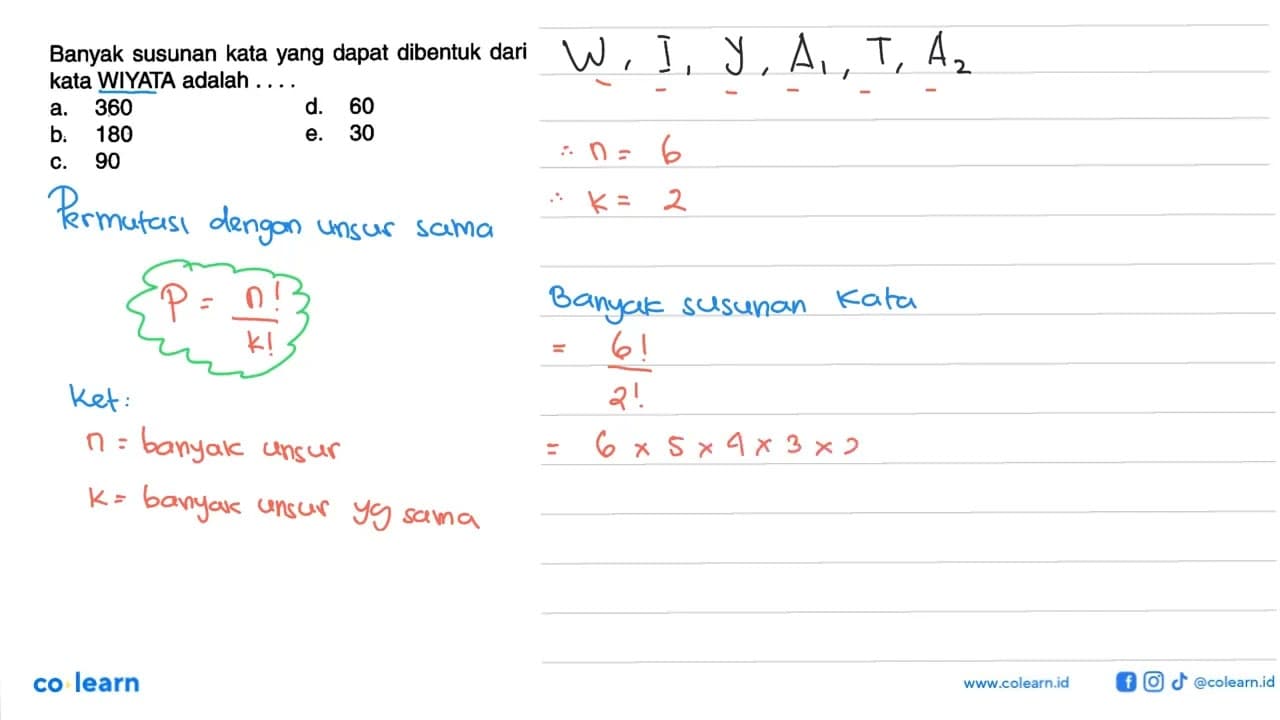 Banyak susunan kata yang dapat dibentuk dari
kata WIYATA adalah . . . .
a. 360
b. 180
c. 90
d. 60
e. 30
Permutasi dengan unsur sama
P = n!
k!
Ket:
n = banyak unsur
k = banyak unsur yg sama
W, I, Y, A1, T, A2
∴ n = 6
∴ k = 2
Banyak susunan kata
= 6!
2!
= 6 × 5 × 4 × 3 × 2
co learn
www.colearn.id
@colearn.id